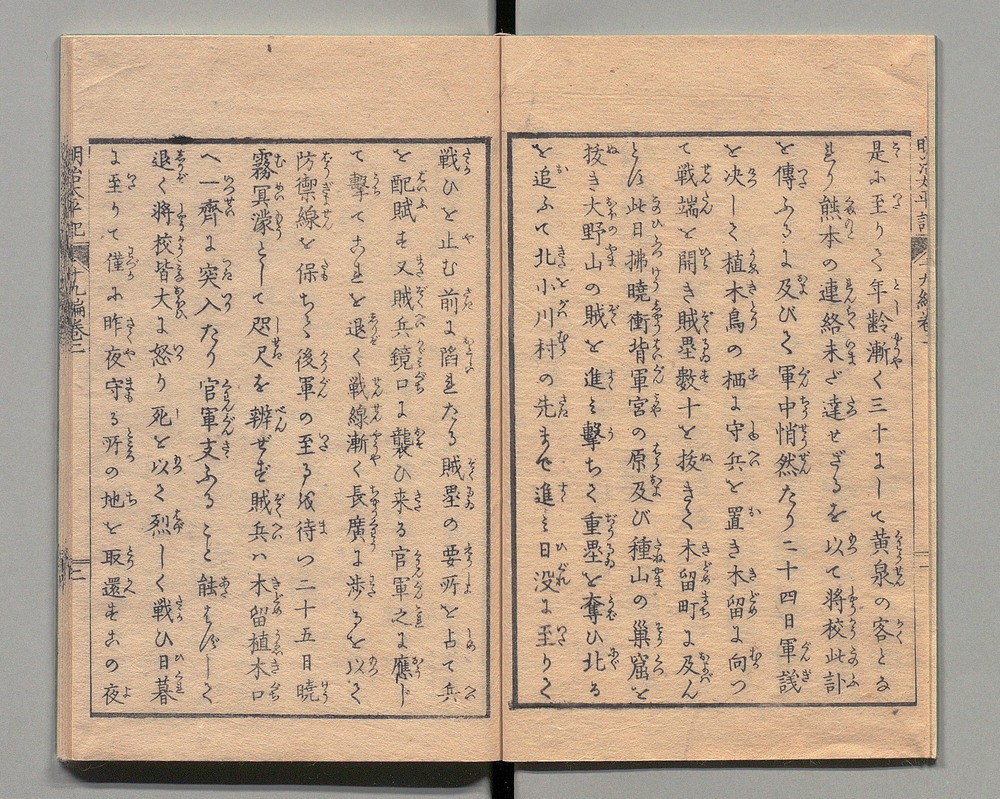 是に至りて年齢漸く三十にして黄泉の客となる
熊本の連絡未だ達せざるを以て将校此訃
を傳ふるに及びて軍中悄然たり二十四日軍議
を决して植木鳥の栖に守兵を置き木留に向つ
て戦端を開き賊塁數十を抜きて木留町に及ん
とに此日拂暁衝背軍宮の原及び種山の巣窟を
抜き大野山の賊を進み擊ちて重塁を奪ひ北る
を追ふて北小川村の先まで進み日没に至りて
戦ひを止む前に陥れたる賊塁の要所を占て兵
を配賦す又賊兵鏡口に襲ひ来る官軍之に應じ
て擊て之を退く戦線漸く長廣に渉るを以て
防禦線を保ちて後軍の至るを待つ二十五日暁
霧冥濛として咫尺を辨ぜず賊兵ハ木留植木口
へ一齊に突入たり官軍支ふること能はずして
退く将校皆大に怒り死を以て烈しく戦ひ日暮
に至りて僅に昨夜守る所の地を取還すこの夜
明治太平記
十九編巻二
二